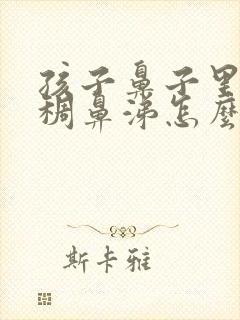 孩子鼻子里
稠鼻涕怎麼
斯卡雅